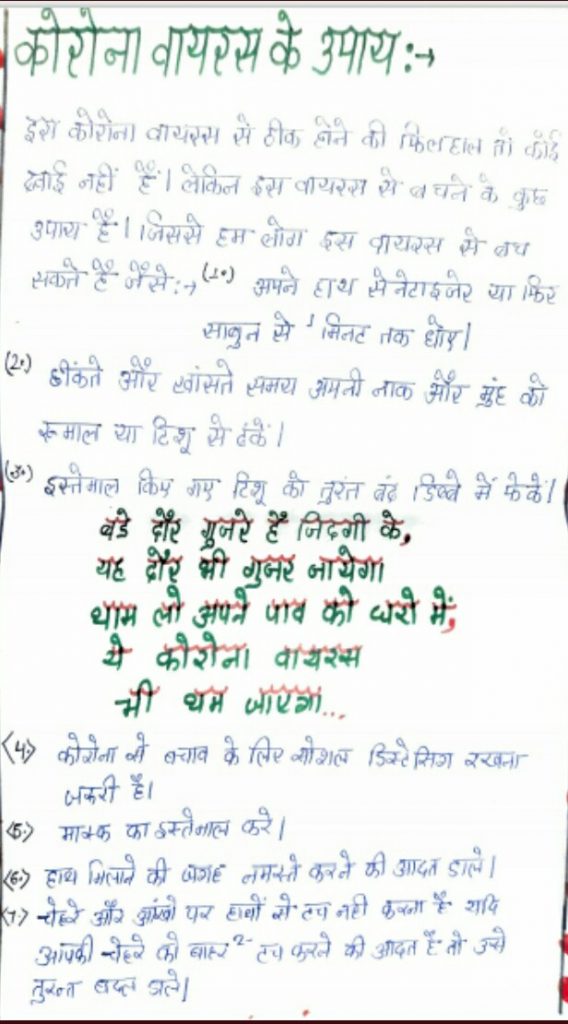 कोरोना वायरस के उपाय :→
इस कोरोना वायरस से ठीक होने की फिलहाल तो कोई
दवाई नहीं है। लेकिन इस वायरस से बचने के कुछ
उपाय है। जिससे हम लोग इस वायरस से बच
सकते हैं जैसे :→ (1.) अपने हाथ सेनेटाइजेर या फिर
साबुन से 1 मिनट तक धोए।
(2.) छींकते और खांसते समय अपनी नाक और मुंह को
रूमाल या टिशू से ढंकें।
(3.) इस्तेमाल किए गए टिशू को तुरंत बंद डिब्बे में फेकें।
बडे दौर गुजरे है जिंदगी के,
यह दौर भी गुजर जायेगा
थाम लो अपने पाव को घरो में,
ये कोरोना वायरस
भी थम जाएगा...
(4.) कोरोना से बचाव के लिए सोशल डिस्टेसिंग रखना
जरुरी है।
(5.) मास्क का इस्तेमाल करे।
(6.) हाथ मिलाने की जगह नमस्ते करने की आदत डाले।
(7.) चेहरे और आंखो पर हाथों से टच नही करना है यदि
आपकी चेहरे को बार 2 टच करने की आदत है तो उसे
तुरन्त बदल डाले।